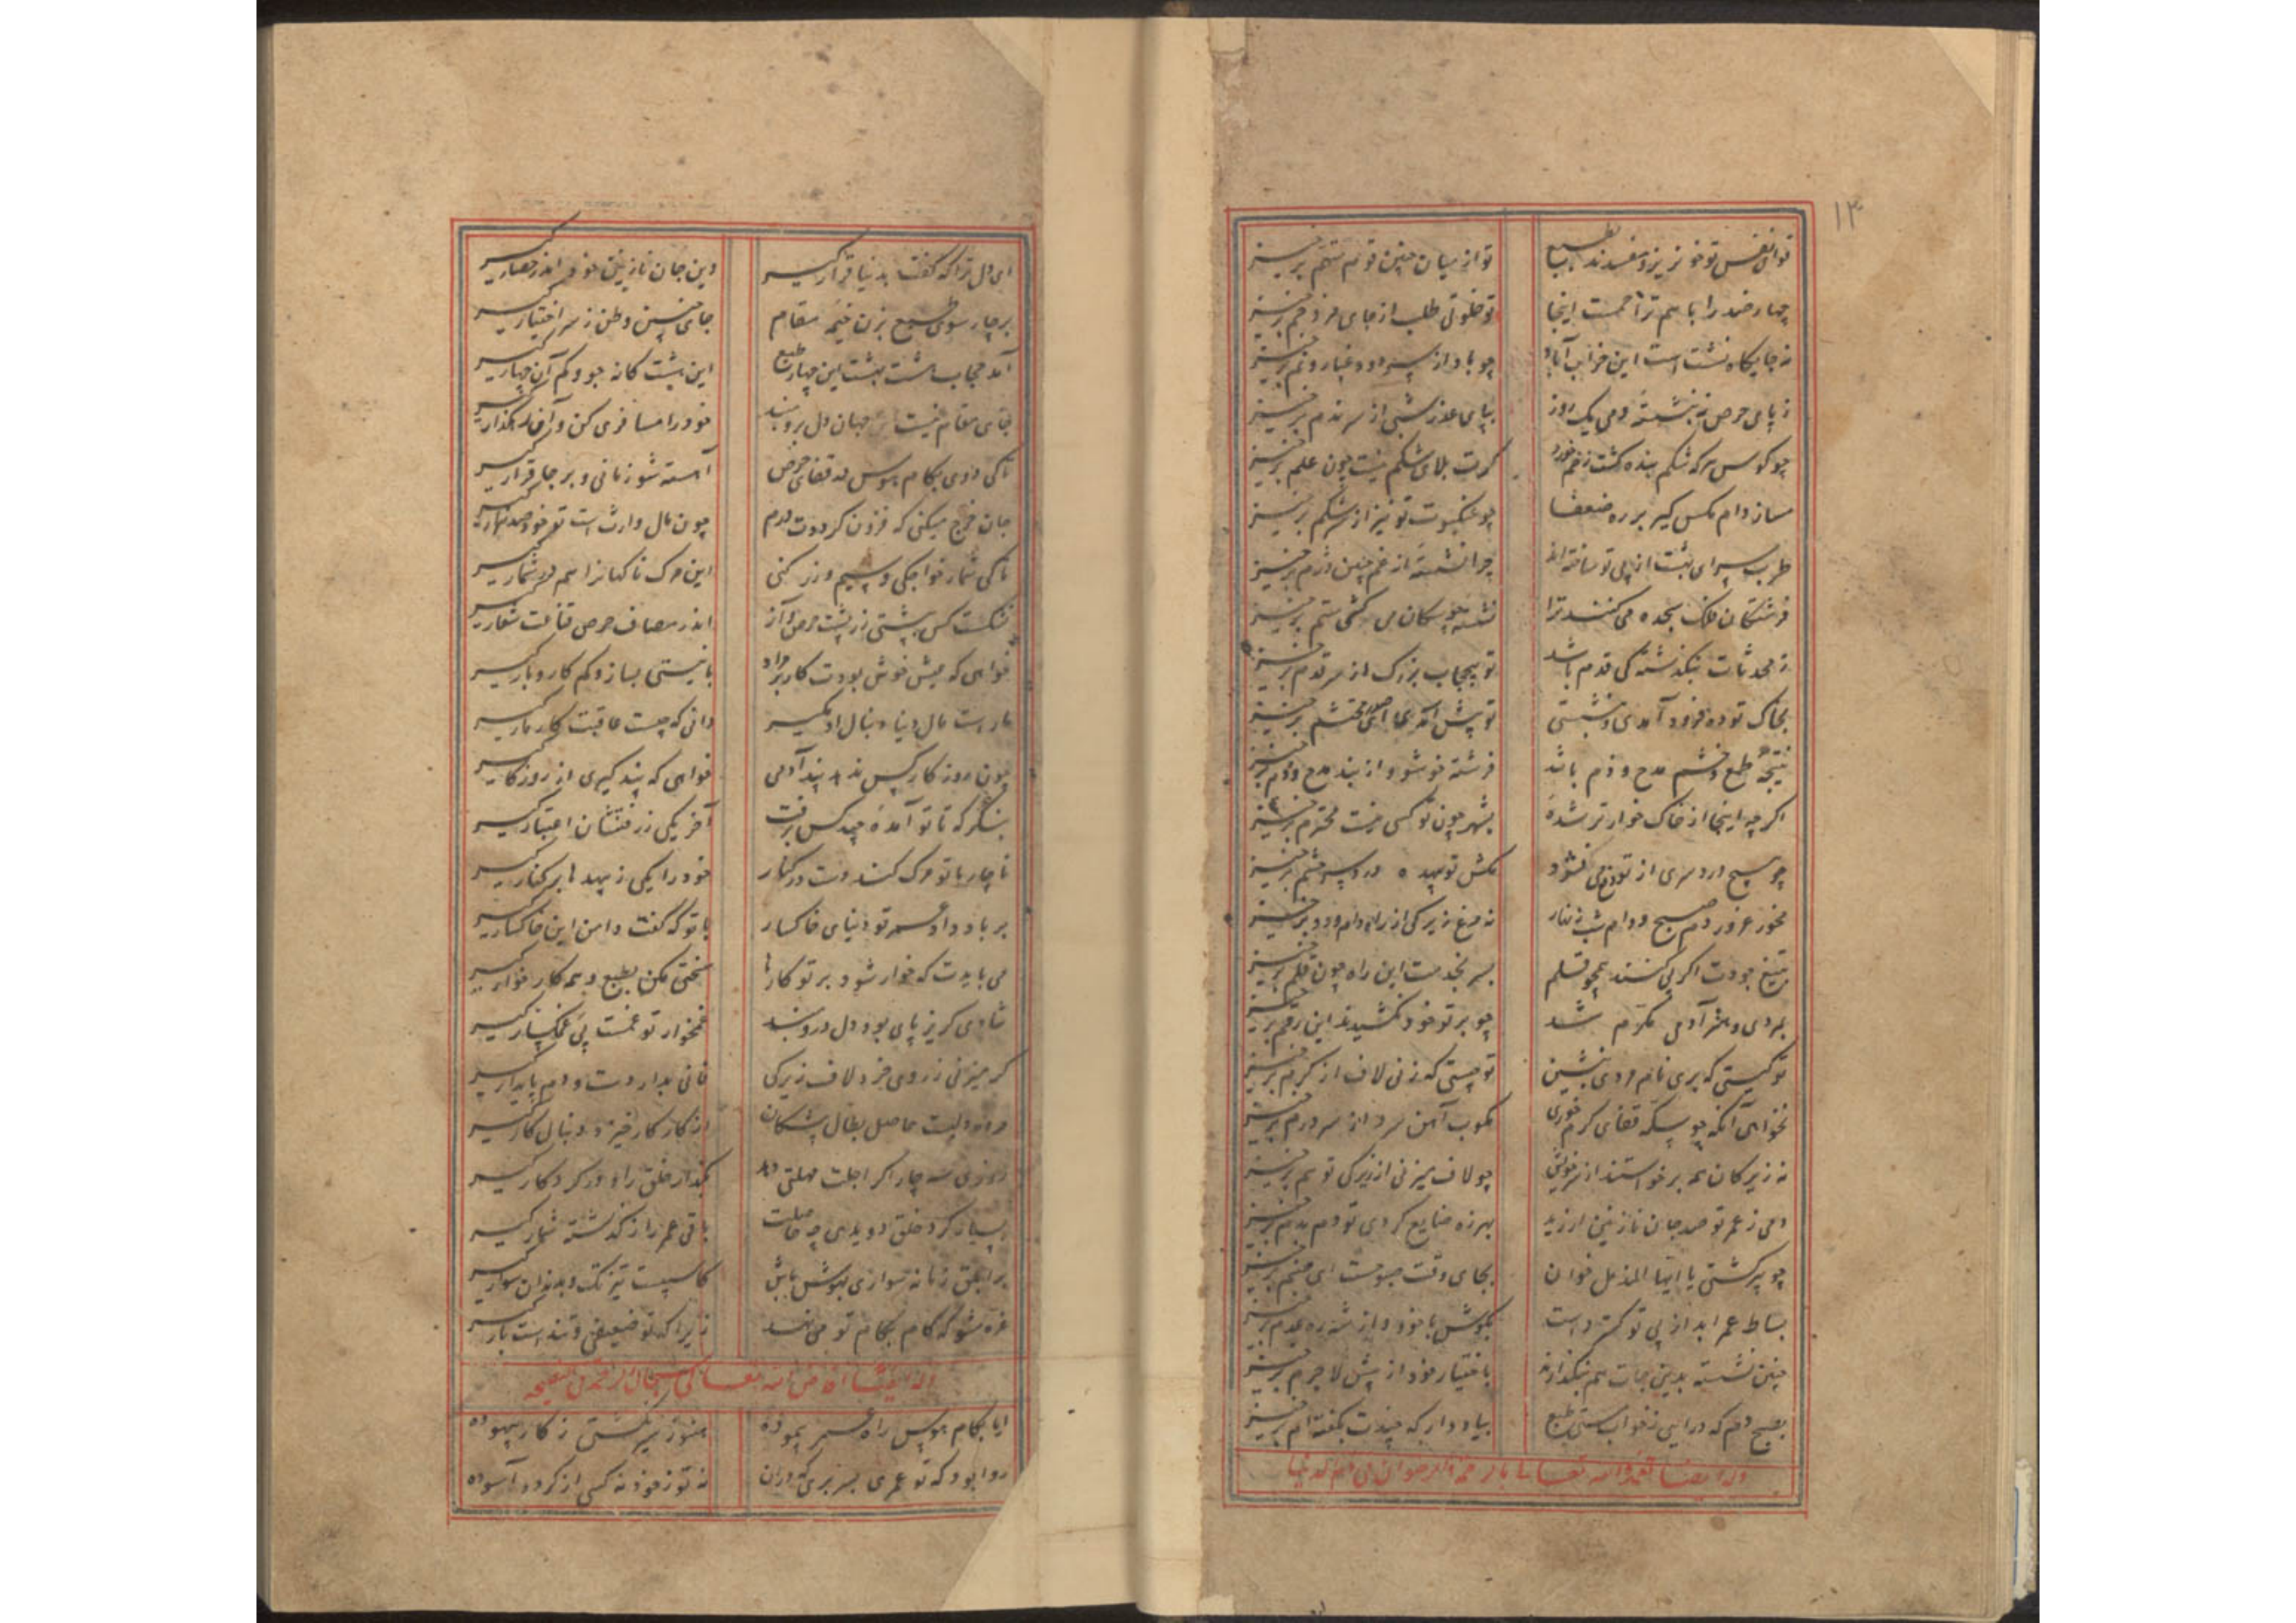 ۱۳
تو از میان چنین قوم متهم برخیز
چهار ضد را با هم ترا اینجا تو خلوتی طلب از جای مزدحم برخیز
نه جایگاه نشست است این خراب آباد چو باد از سر دود و غبار و نم برخیز
ز پای حرص نه بنشسته دمی یک روز بپای عذر شبی از سر ندم برخیز
چو کوس هر که شکم بنده گشت زخم خورد گرت بلای شکم نیست چون علم برخیز
مساز دام مگس گیر بر ره ضعفا چو عنکبوت تو نیز از سر شکم برخیز
طرب سرای بهشت از پی تو ساخته‌اند چرا نشسته از غم چنین دژم برخیز
فرشتگان فلک سجده می کنند ترا نشسته چو سگان می کشی ستم برخیز
ز محدثات نبگذشته کی قدم باشد تو بیحجاب بزرگ از سر قدم برخیز
بخاک توده فرود آمدی و بنشستی تو پیش ای محتشم برخیز
نتیجه طمع و خشم مدح و ذم باشد فرشته خو شو و از بند مدح و ذم برخیز
اگر چه اینجا از خاک خوارتر شده بشهر چون تو کسی نیست محترم برخیز
چو هیچ درد سری از تو می نشود مکش تو بیهده درد سر و حشم برخیز
مخور غرور دم صبح و دام شب زنهار نه مرغ زیرکی از راه دام و دد برخیز
بتیغ جودت اگر پی کنند همچو قلم بسر بخدمت این راه چون قلم برخیز
بمردی و هنر آدمی مکرم شد چو بر تو خود نکشیدند این رقم برخیز
تو کیستی که بری نام مردی بنشین تو چیستی که زنی لاف از کرم برخیز
نخواهی آنکه چو سکه قفای گرم خوری مکوب آهن سرد از سر درم برخیز
نه زیرکان همه برخواستند از سر خویش چو لاف میزنی از زیرکی تو هم برخیز
دمی ز عمر تو صد جان نازنین ارزید بهرزه ضایع کردی تو دم بدم برخیز
چو پیر گشتی یا ایها المزمل خوان بجای وقت صبوحست ای صنم برخیز
بساط عمر ابد از پی تو گسترده است بکوش با خود و از شه ره عدم برخیز
چنین نشسته بدین جات هم نبگذارند باختیار خود از پیش لاجرم برخیز
بصبح دم که درآیی ز خواب مستی طبع بیاد دار که چندت بگفته‌ام برخیز
وله ایضا تغمده الله تعالی بالرحمة والرضوان
ای دل ترا که گفت بدنیا قرار گیر وین جان نازنین خود اندر حصار گیر
بر چار سوی طبع بزن خیمه مقام جای حسین وطن ز سر اختیار گیر
آمد حجاب هشت بهشت این چهار طبع این هشت گانه جو و کم آن چهار گیر
جای مقام نیست جهان دل برو مبند خود را مسافری کن و آن رهگذار گیر
تا کی دوی بکام هوس در قفای حرص آهسته شو زمانی و بر جا قرار گیر
جان خرج میکنی که فزون گرددت درم چون مال وارث است تو خود صد هزار گیر
تا کی شمار خواجگی و سیم و زر کنی این مرگ ناگهان را هم در شمار گیر
نشکست کس بپشتی زر پشت حرص و آز اندر مصاف حرص قناعت شعار گیر
خواهی که عیش خوش بودت کار بر مراد با نیستی بساز و کم کار و بار گیر
مار است مال دنیا دنبال او مگیر دانی که چیست عاقبت کار مار گیر
چون روزگار کس ندهد پند آدمی خواهی که پند گیری از روزگار گیر
بنگر که تا تو آمده چند کس برفت آخر یکی ز رفتنشان اعتبار گیر
ناچار با تو مرگ کند دست در کنار خود را یکی ز بیهده‌ها بر کنار گیر
بر باد داد عمر تو دنیای خاکسار با تو که گفت دامن این خاکسار گیر
می بایدت که خوار شود بر تو کارها سختی مکن بطبع و همه کار خوار گیر
شادی گریز پای بود دل درو مبند غمخوار تو غمست پی غمگسار گیر
گر میزنی ز روی خرد لاف زیرکی فانی بدار دست و دم پایدار گیر
از کار کار خیزد و دنبال کار گیر
روزی سه چار اگر اجلت مهلتی دهد بگذار خلق را و در کردگار گیر
بسیار گرد خلق دویدی چه حاصلت باقی عمر را ز گذشته شمار گیر
بر ابلق زمانه سواری بهوش باش کاسبیست تیز تک و بدندان سوار گیر
غره مشو که گام بکام تو می نهد زیرا که تو ضعیفی و تند است بارگیر
وله ایضا
ایا بکام هوس راه عمر پیموده هنوز سیر نگشتی ز کار بیهوده
روا بود که تو عمری بسر بری که در آن نه تو ز خود نه کسی از تو گردد آسوده